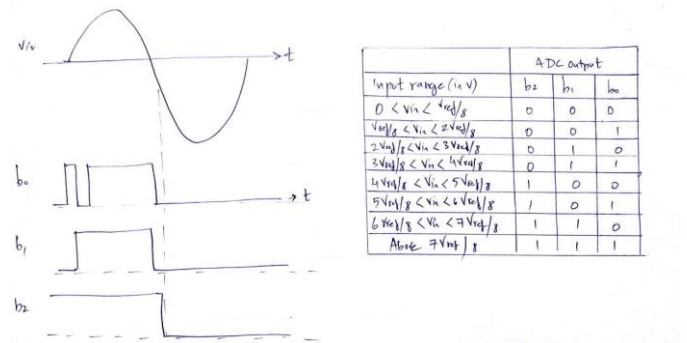 Vin
t
b0
t
b1
b2
ADC output
Input range (in V) b2 b1 b0
0 < Vin < Vref/8 0 0 0
Vref/8 < Vin < 2Vref/8 0 0 1
2Vref/8 < Vin < 3Vref/8 0 1 0
3Vref/8 < Vin < 4Vref/8 0 1 1
4Vref/8 < Vin < 5Vref/8 1 0 0
5Vref/8 < Vin < 6Vref/8 1 0 1
6Vref/8 < Vin < 7Vref/8 1 1 0
Above 7Vref/8 1 1 1